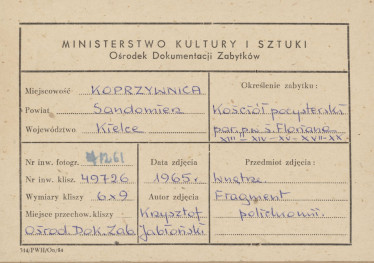 MINISTERSTWO KULTURY I SZTUKI
Ośrodek Dokumentacji Zabytków
Miejscowość KOPRZYWNICA
Powiat Sandomierz
Województwo Kielce
Określenie zabytku:
Kościół pocysterski
par. p.w. ś. Floriana
XIII - XIV - XV - XVII - XX
Nr inw. fotogr.
Nr inw. klisz. 49726
Wymiary kliszy 6x9
Miejsce przechow. kliszy
Ośrod. Dok. Zab
Data zdjęcia
1965 r.
Autor zdjęcia
Krzysztof
Jabłoński
Przedmiot zdjęcia:
Wnętrze
Fragment
polichromii.